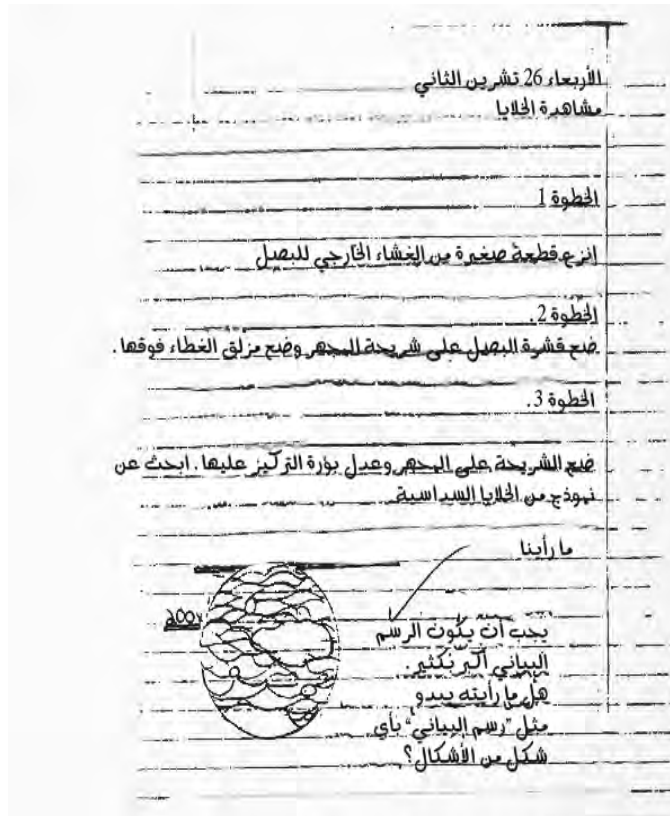 الأربعاء 26 تشرين الثاني
مشاهدة الخلايا
الخطوة 1
انزع قطعة صغيرة من الغشاء الخارجي للبصل
الخطوة 2.
ضع قشرة البصل على شريحة المجهر وضع مزلق الغطاء فوقها.
الخطوة 3.
ضع الشريحة على المجهر وعدل بؤرة التركيز عليها. ابحث عن
نموذج من الخلايا السداسية
ما رأينا
يجب أن يكون الرسم
البياني أكبر بكثير.
هل ما رأيته يبدو
مثل "رسم البياني" بأي
شكل من الأشكال؟